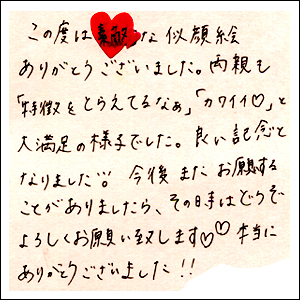 この度は素敵な似顔絵
ありがとうございました。両親も
「特徴をとらえてるなぁ」「カワイイ♡」と
大満足の様子でした。良い記念と
なりました!! 今後またお願いする
ことがありましたら、その時はどうぞ
よろしくお願い致します♡♡ 本当に
ありがとうございました!!